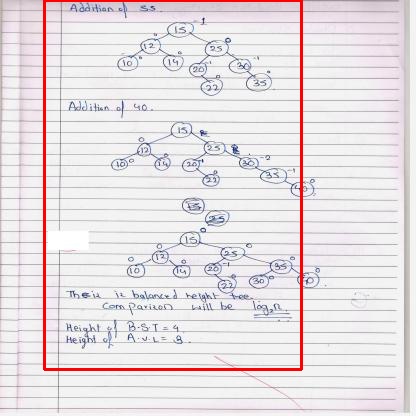 Addition of 55.
15 -1
12 0 25 0
10 0 14 0 20 -1 30 -1
22 0 35 0
Addition of 40.
15
0 12 25
10 0 14 0 20 -1 30 -2
22 35 -1
40 0
15
25
15 0
0 12 25 0
10 0 14 0 20 -1 35 0
22 0 30 0 40 0
is balanced height tree.
Comparison will be log₂n.
Height of B.S.T = 4
Height of A.V.L = 3